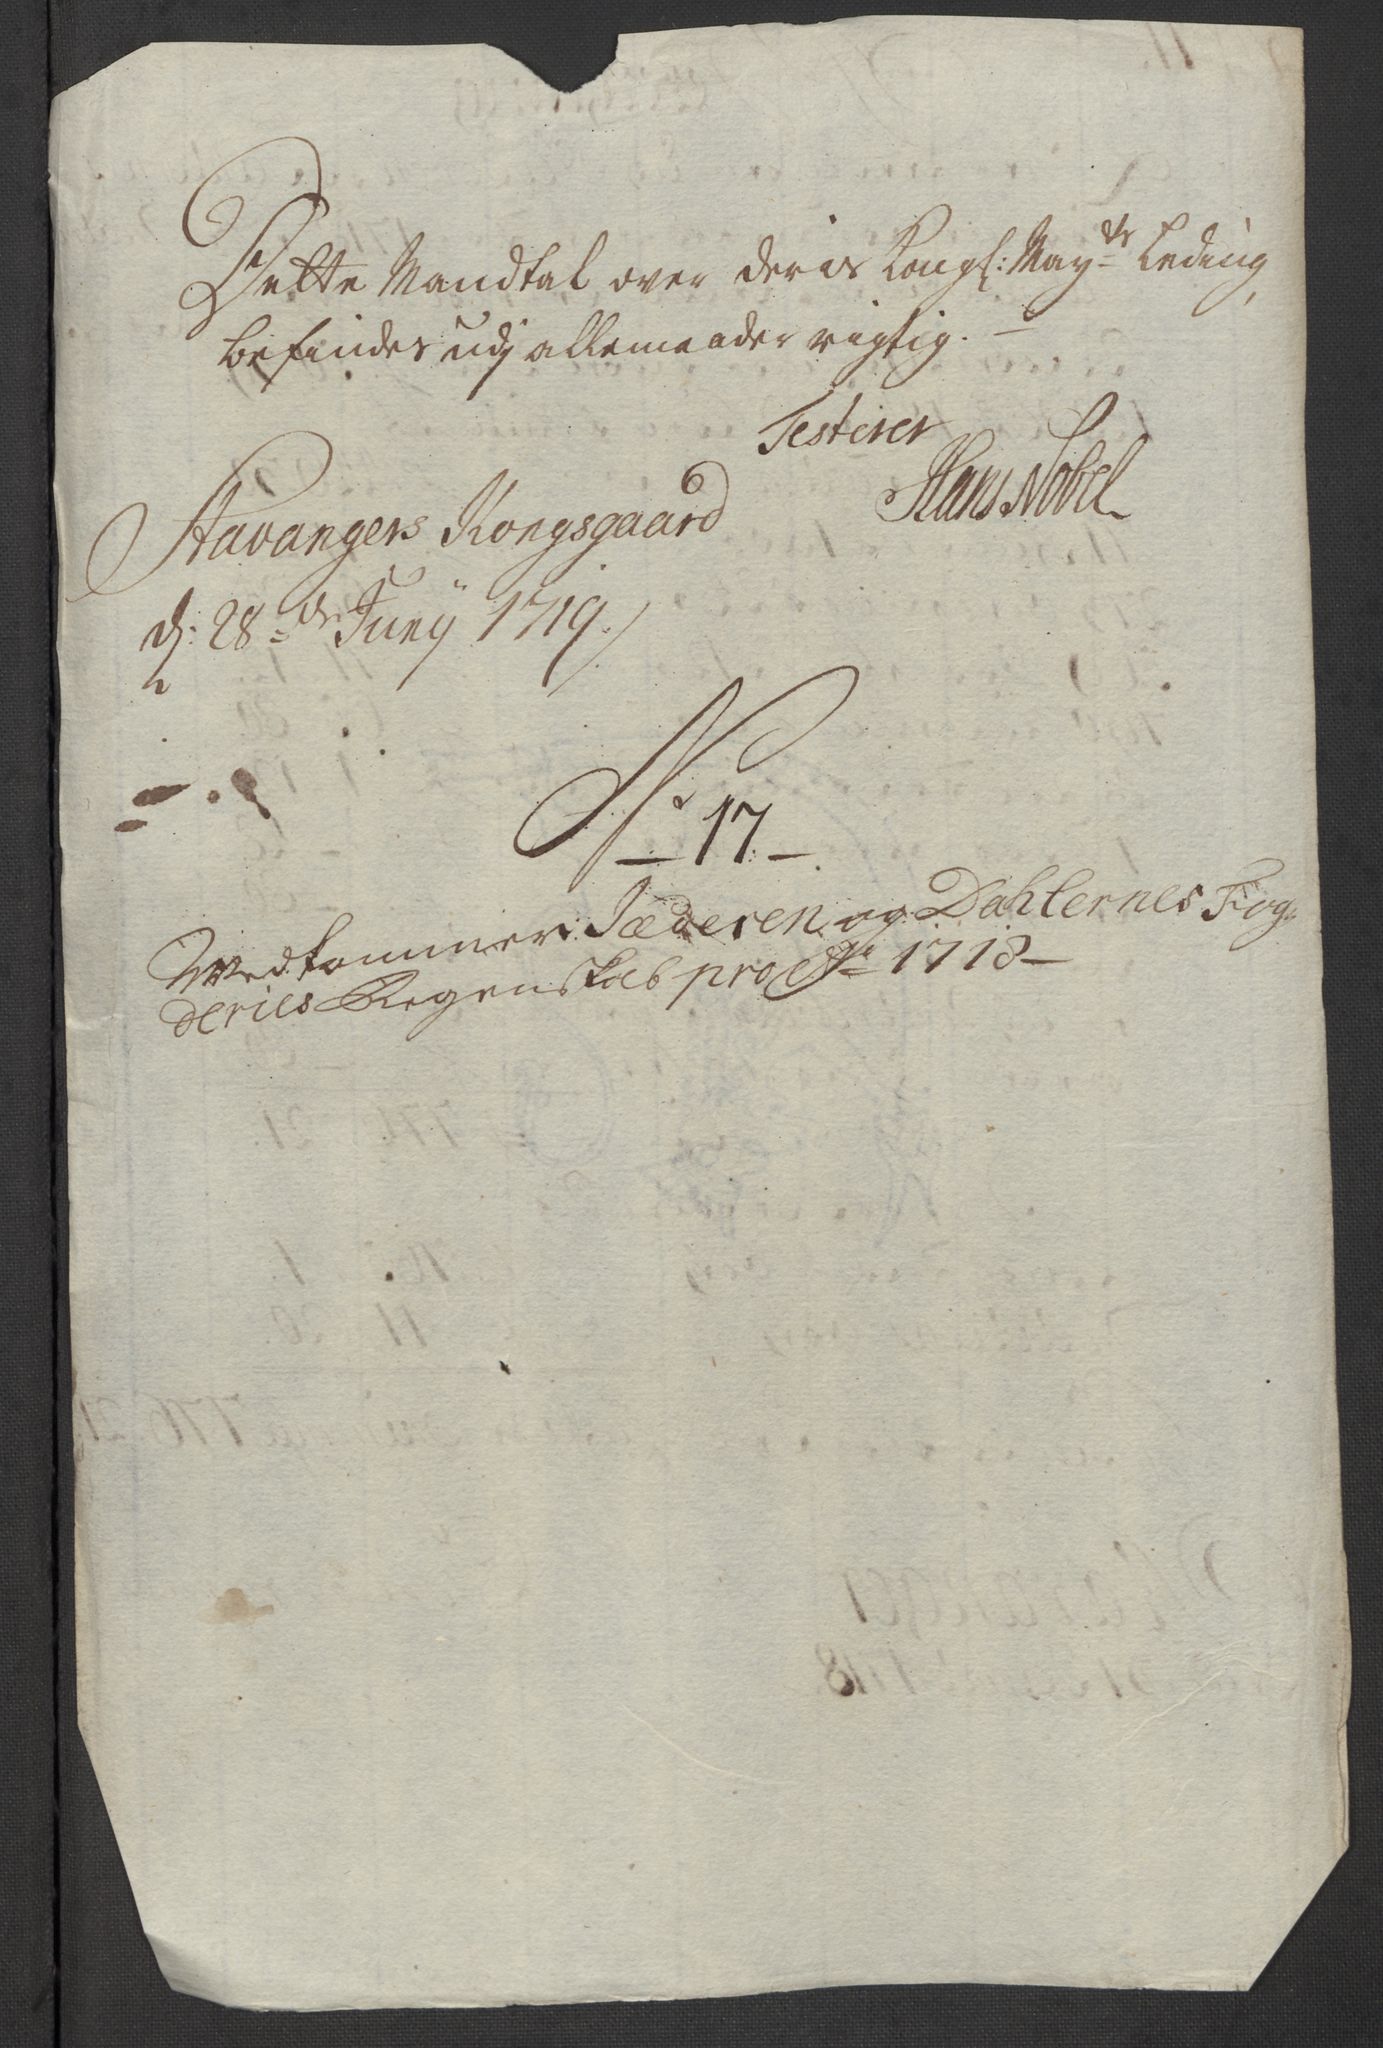 Dette Mandtal over deris Kongl: May:ts Leding
befindes udj alle maader rigtig. —
Testerer
Hans Nobel
Stavangers Kongsgaard
d: 28de Junij 1719.
No 17
Vedkommer Jæderen og Dahlernes Fog-
deries Regenskab pro Ao 1718 —